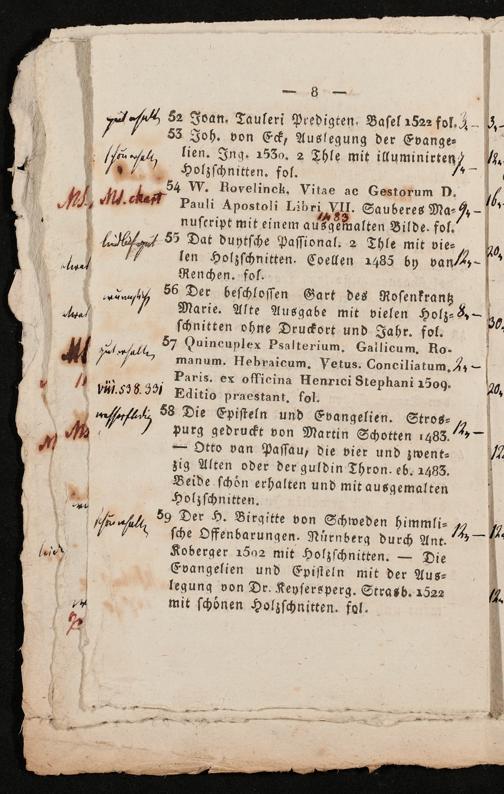 — 8 —
gut erhalt 52 Joan. Tauleri Predigten. Basel 1522 fol. 3,—
53 Joh. von Eck, Auslegung der Evange⸗
schön erhalt lien. Ing. 1530. 2 Thle mit illuminirten
Holzschnitten. fol.
Ms. chart 54 W. Rovelinck. Vitae ac Gestorum D.
Pauli Apostoli Libri VII. Sauberes Ma⸗ 9,—
1483
nuscript mit einem ausgemalten Bilde. fol.
55 Dat duytsche Passional. 2 Thle mit vie⸗
len Holzschnitten. Coellen 1485 by van 12,—
Renchen. fol.
56 Der beschlossen Gart des Rosenkrantz
Marie. Alte Ausgabe mit vielen Holz⸗ 8,—
schnitten ohne Druckort und Jahr. fol.
gut erhalten 57 Quincuplex Psalterium. Gallicum. Ro-
manum. Hebraicum. Vetus. Conciliatum. 2,—
Paris. ex officina Henrici Stephani 1509.
VIII. 538. 391 Editio praestant. fol.
wasserfleckig 58 Die Episteln und Evangelien. Stros⸗
purg gedruckt von Martin Schotten 1483. 12,—
— Otto van Passau, die vier und zwent⸗
zig Alten oder der guldin Thron. eb. 1483.
Beide schön erhalten und mit ausgemalten
Holzschnitten.
schön erhalt 59 Der H. Birgitte von Schweden himmli⸗
sche Offenbarungen. Nürnberg durch Ant. 12,—
Koberger 1502 mit Holzschnitten. — Die
Evangelien und Episteln mit der Aus⸗
legung von Dr. Keysersperg. Strasb. 1522
mit schönen Holzschnitten. fol.